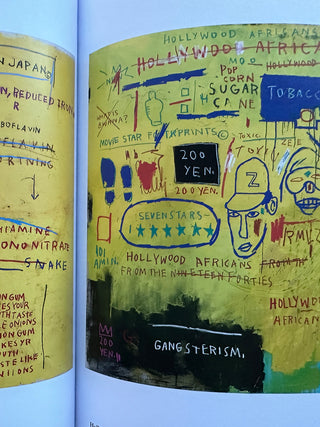 N JAPAN©
N, REDUCED IRON
R
BOFLAVIN
FLAVIN
ORTNING
IAMINE
MONONITRATE
SNAKE
NGUM
KES YOUR
TH TASTE
E ONIONS
ION GUM
KES YR
OUTH
STE LIKE
NIIONS
HOLLYWOOD AFRICANS
HOLLYWOOD AFRICA
HOLLYWOOD
POP
CORN
SUGAR
CANE
TOBACCO
WHAT IS
BWANA?
MOVIE STAR FOOTPRINTS©
TOXIC
200
YEN.
200 YEN.
SEVEN STARS
Z
RMLZ
101
AMIN.
HOLLYWOOD AFRICANS
FROM THE NINETEEN FORTIES
HOLLYWO
AFRICAN
200
YEN.
GANGSTERISM.